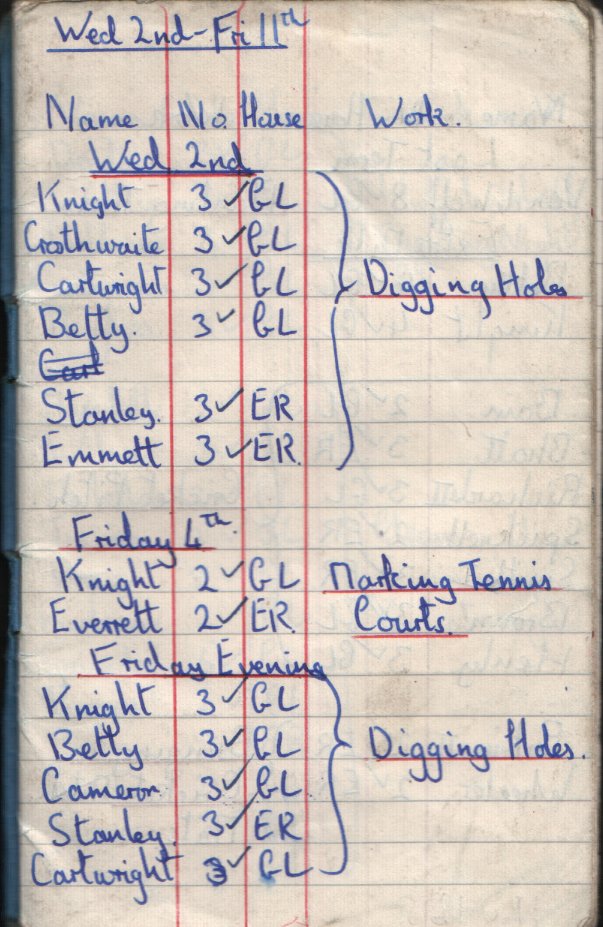 Wed 2nd - Fri 11th
Name No. House Work.
Wed 2nd
Knight 3 ✓ GL
Crosthwaite 3 ✓ GL
Cartwright 3 ✓ GL Digging Holes
Betty. 3 ✓ GL
Cart
Stanley. 3 ✓ ER
Emmett 3 ✓ ER.
Friday 4th.
Knight 2 ✓ GL Marking Tennis
Everrett 2 ✓ ER. Courts.
Friday Evening
Knight 3 ✓ GL
Betty 3 ✓ GL Digging Holes.
Cameron. 3 ✓ GL
Stanley. 3 ✓ ER
Cartwright 3 ✓ GL